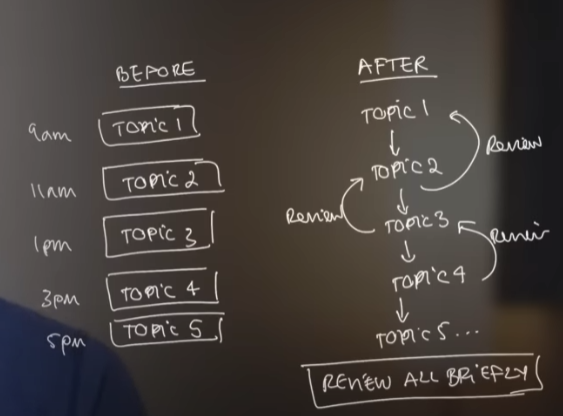 BEFORE
9am TOPIC 1
11am TOPIC 2
1pm TOPIC 3
3pm TOPIC 4
5pm TOPIC 5
AFTER
TOPIC 1
Review
TOPIC 2
Review
TOPIC 3
Review
TOPIC 4
TOPIC 5...
REVIEW ALL BRIEFLY